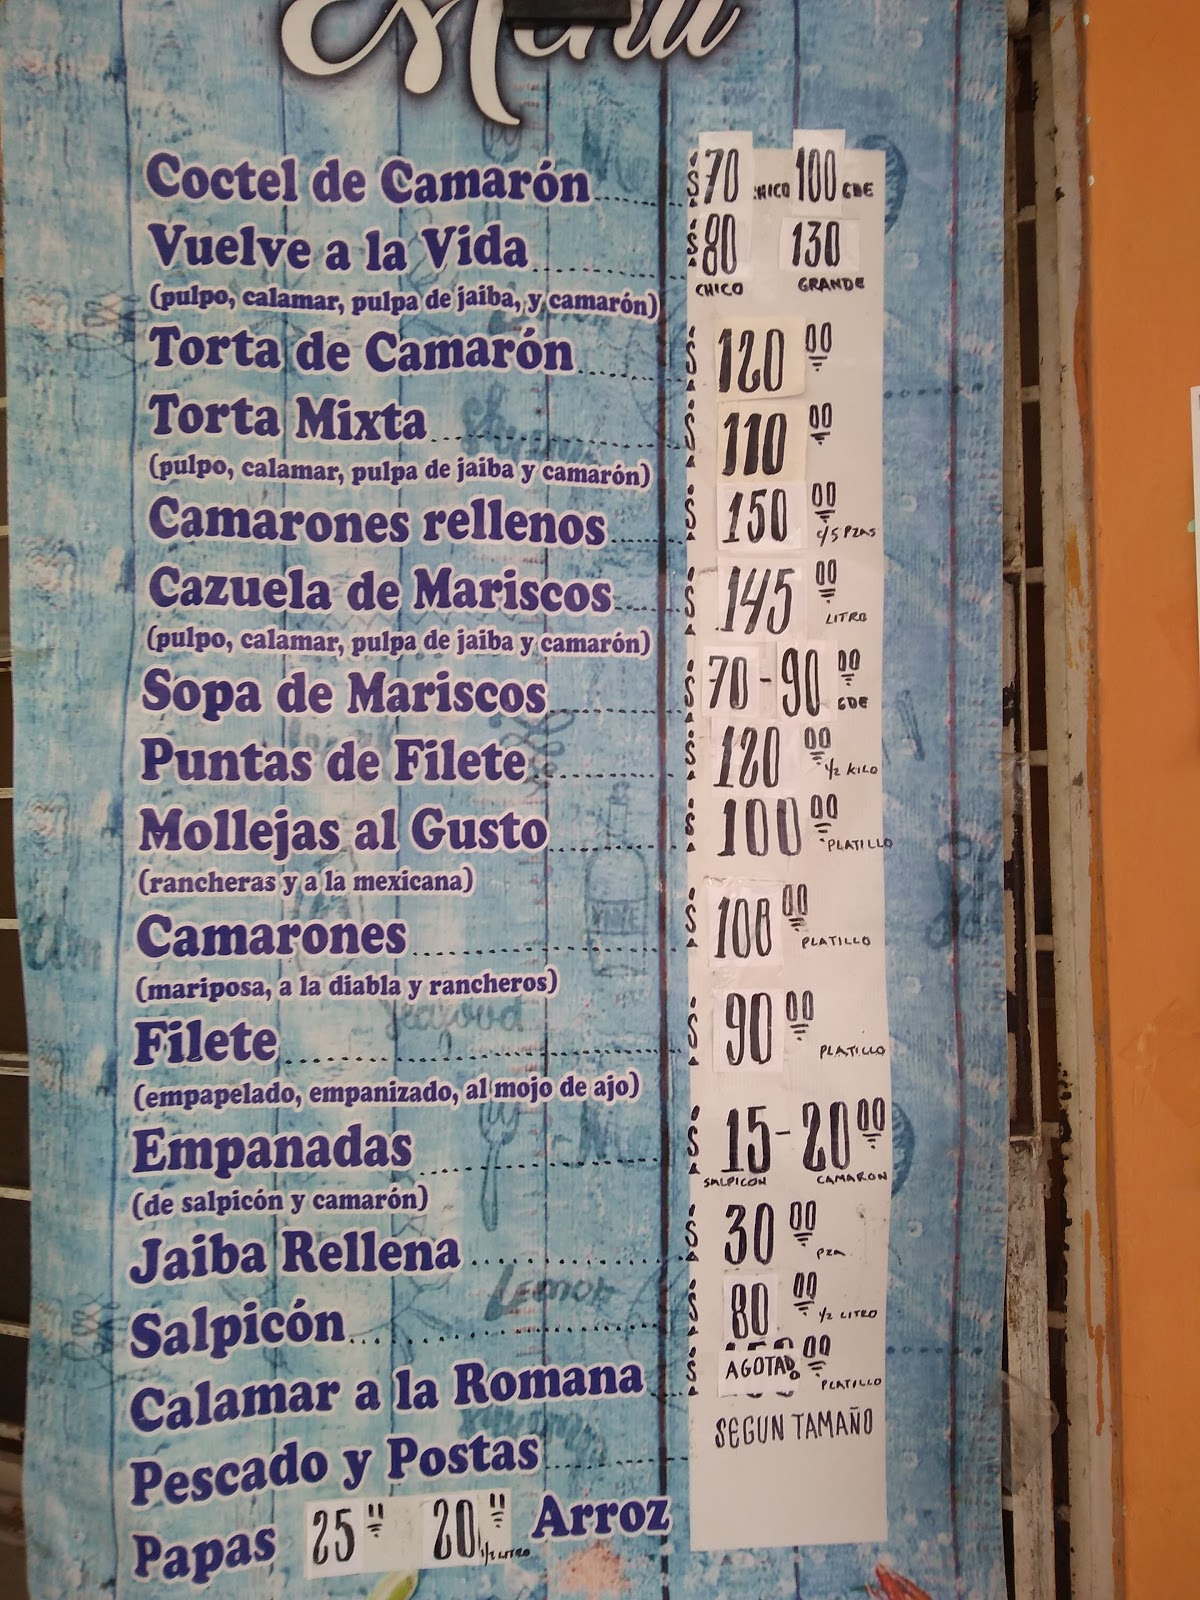 Menú
Coctel de Camarón $70 CHICO 100 GDE
Vuelve a la Vida $80 130
CHICO GRANDE
(pulpo, calamar, pulpa de jaiba, y camarón)
Torta de Camarón $ 120 00
Torta Mixta $ 110 00
(pulpo, calamar, pulpa de jaiba y camarón)
Camarones rellenos $ 150 00 c/5 PZAS
Cazuela de Mariscos $ 145 00 LITRO
(pulpo, calamar, pulpa de jaiba y camarón)
Sopa de Mariscos $ 70 - 90 00 GDE
Puntas de Filete $ 120 00 1/2 KILO
Mollejas al Gusto $ 100 00 PLATILLO
(rancheras y a la mexicana)
Camarones $ 100 00 PLATILLO
(mariposa, a la diabla y rancheros)
Filete $ 90 00 PLATILLO
(empapelado, empanizado, al mojo de ajo)
Empanadas $ 15 - 20 00
SALPICON CAMARON
(de salpicón y camarón)
Jaiba Rellena $ 30 00 PZA
Salpicón $ 80 00 1/2 LITRO
Calamar a la Romana $ AGOTADO 00 PLATILLO
Pescado y Postas SEGUN TAMAÑO
Papas 25 20 1/2 LITRO Arroz